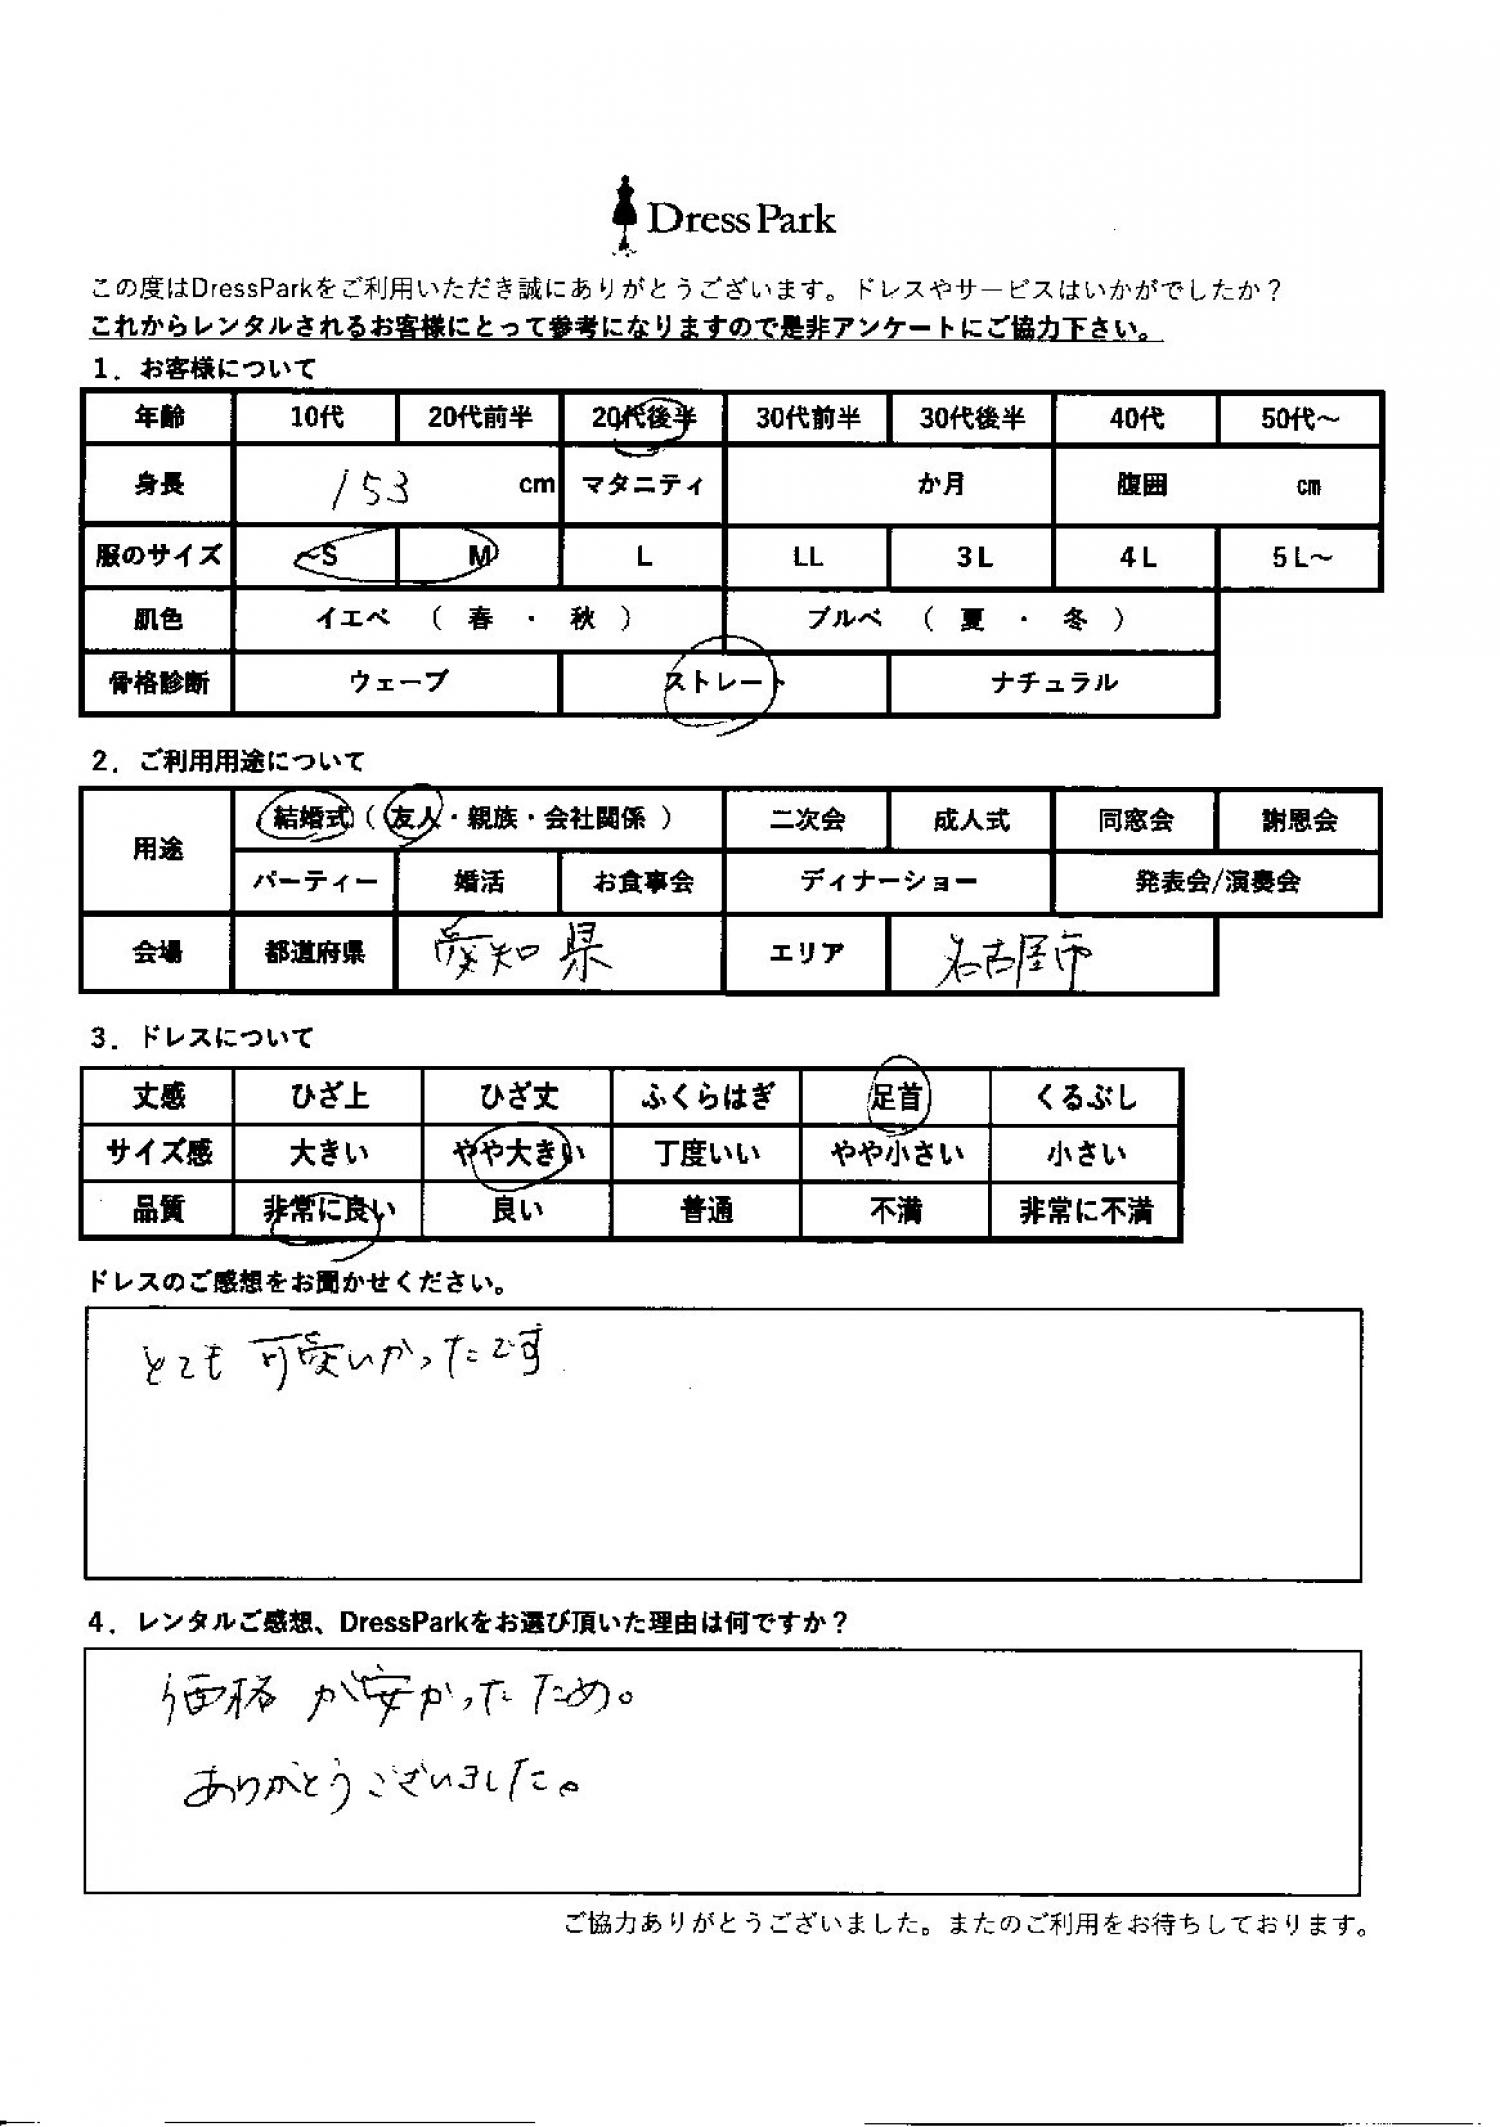 Dress Park
この度はDressParkをご利用いただき誠にありがとうございます。ドレスやサービスはいかがでしたか？
これからレンタルされるお客様にとって参考になりますので是非アンケートにご協力下さい。
1．お客様について
年齢 10代 20代前半 20代後半 30代前半 30代後半 40代 50代～
身長 153 cm マタニティ か月 腹囲 cm
服のサイズ ～S M L LL 3L 4L 5L～
肌色 イエベ （ 春 ・ 秋 ） ブルベ （ 夏 ・ 冬 ）
骨格診断 ウェーブ ストレート ナチュラル
2．ご利用用途について
用途 結婚式（ 友人・親族・会社関係 ） 二次会 成人式 同窓会 謝恩会
パーティー 婚活 お食事会 ディナーショー 発表会/演奏会
会場 都道府県 愛知県 エリア 名古屋市
3．ドレスについて
丈感 ひざ上 ひざ丈 ふくらはぎ 足首 くるぶし
サイズ感 大きい やや大きい 丁度いい やや小さい 小さい
品質 非常に良い 良い 普通 不満 非常に不満
ドレスのご感想をお聞かせください。
とても可愛いかったです
4．レンタルご感想、DressParkをお選び頂いた理由は何ですか？
価格が安かったため。
ありがとうございました。
ご協力ありがとうございました。またのご利用をお待ちしております。